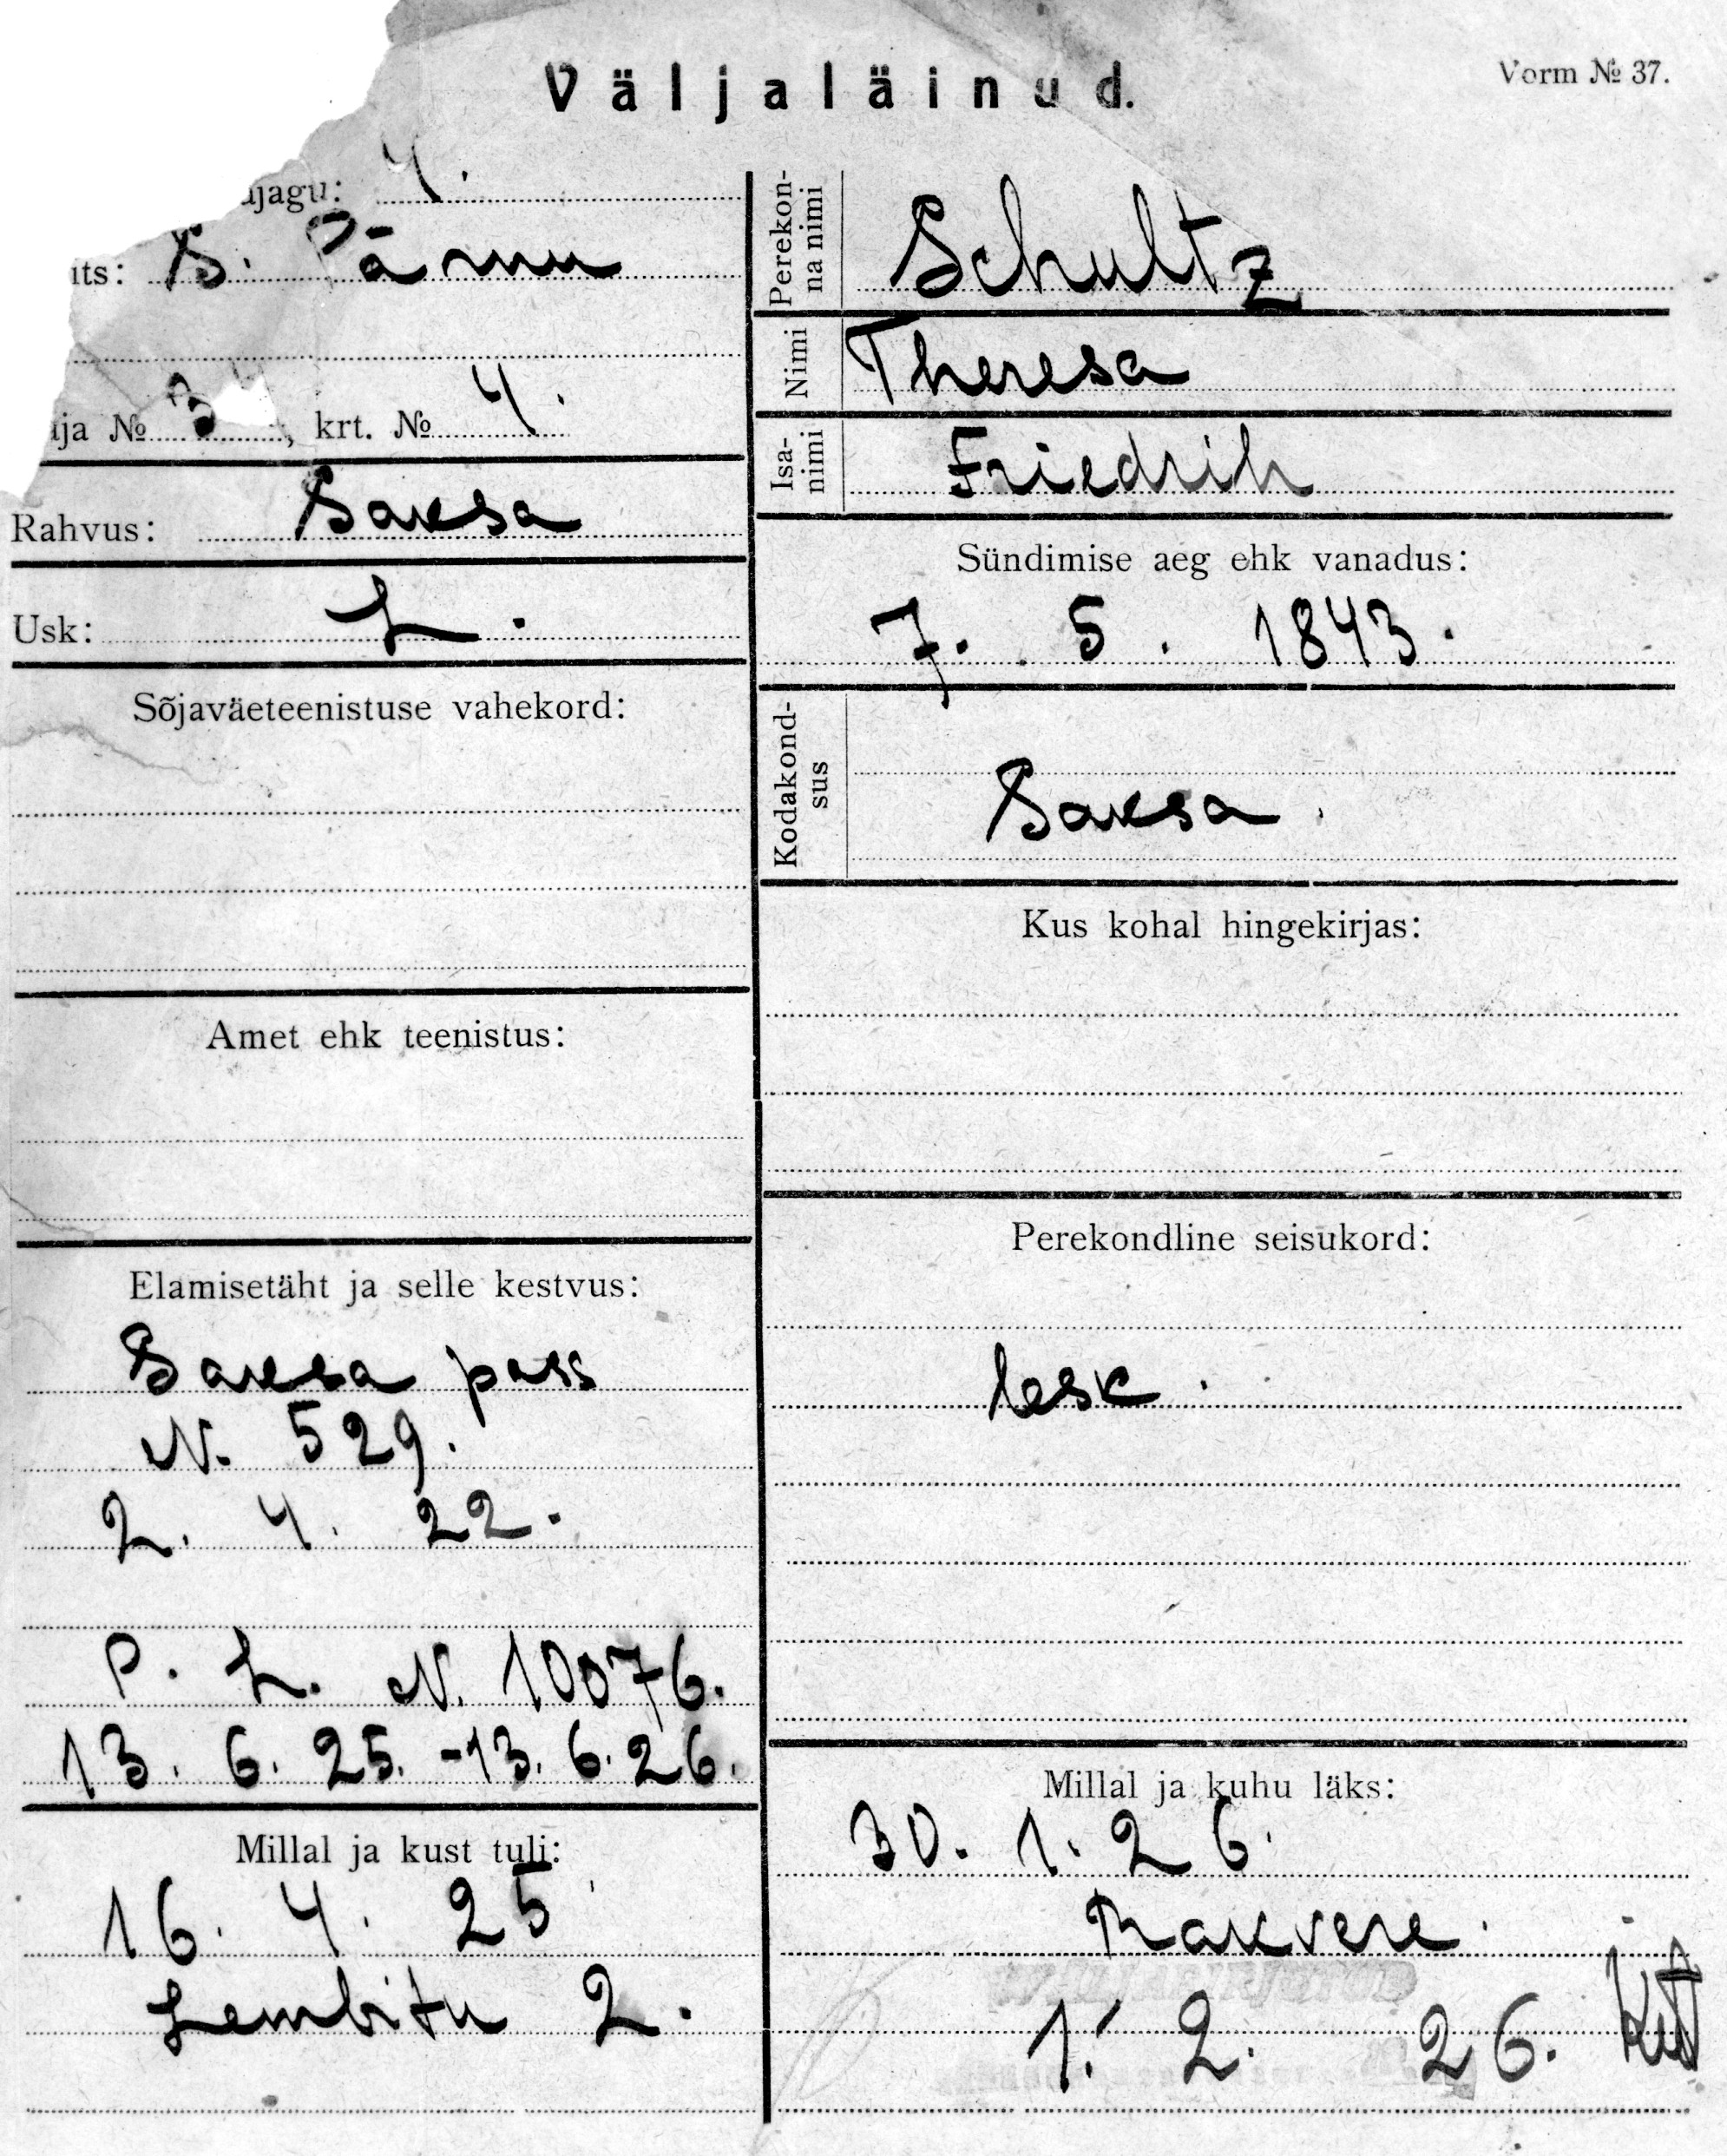 Väljaläinud.
Vorm № 37.
ajagu: 4.
its: S. Pärnu
aja № 3, krt. № 4.
Rahvus: Saksa
Usk: L.
Sõjaväeteenistuse vahekord:
Amet ehk teenistus:
Elamisetäht ja selle kestvus:
Saksa pass
N. 529.
2. 4. 22.
P. L. N. 10076.
13. 6. 25. - 13. 6. 26.
Millal ja kust tuli:
16. 4. 25
Lembitu 2.
Perekon-
na nimi
Schultz
Nimi
Theresa
Isa-
nimi
Friedrih
Sündimise aeg ehk vanadus:
7. 5. 1843.
Kodakond-
sus
Saksa.
Kus kohal hingekirjas:
Perekondline seisukord:
lesk.
Millal ja kuhu läks:
30. 1. 26.
Rakvere.
1. 2. 26.